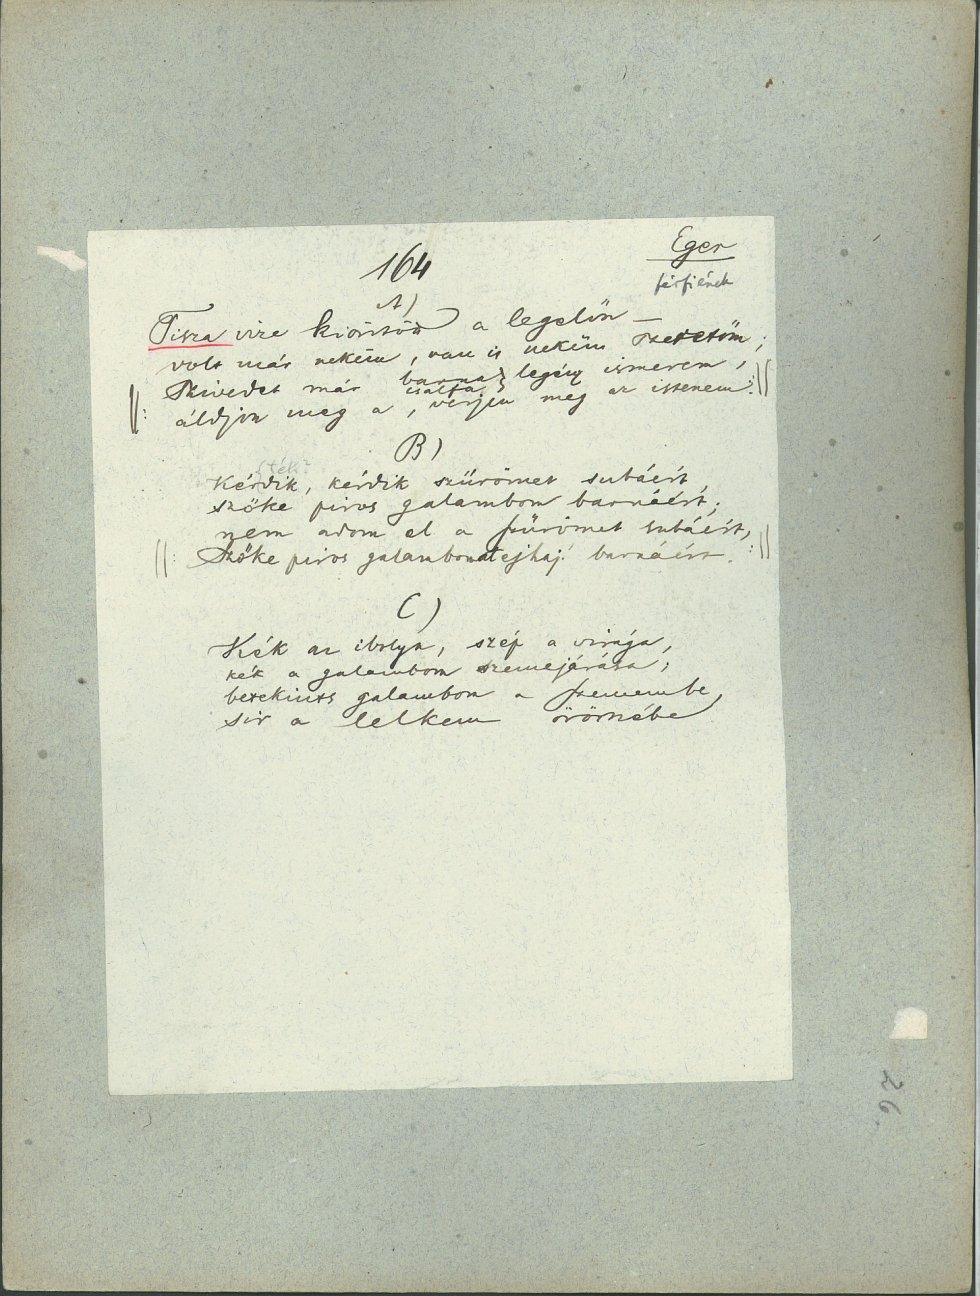 164
Eger
férfiének
A)
Tisza vize kiöntön a legelőn —
volt már nekëm, van is nekëm szeretőm;
||: Szivedet már barna legény ismerem,
csalfa
áldjon meg a, verjen meg az istenem :||
B)
Kérdik, kérdik szűrömet subáért,
szőke piros galambom barnáért;
nem adom el a szűrömet subáért,
||: Szőke piros galambomat barnáért. :||
C)
Kék az ibolya, szép a virága,
kék a galambom szemejárása;
betekints galambom a szemembe,
sir a lelkem örömébe
26